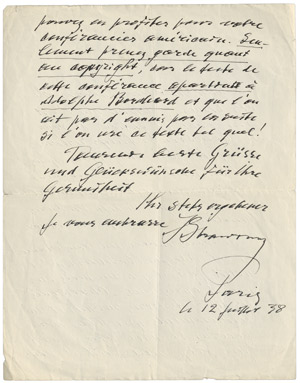 pouvez en profiter pour votre
conférence américaine. Seu-
lement prenez garde quant
au copyright, tout le texte de
cette conférence appartient à
Adolphe Borchard et que l'on
ait pas d'ennuis par ensuite
si l'on use ce texte tel quel!
Tausend beste Grüsse
und Glückwünsche für Ihre
Gesundheit
Ihr stets ergebener
Je vous embrasse IStrawinsky
Paris
le 12 Juillet 38